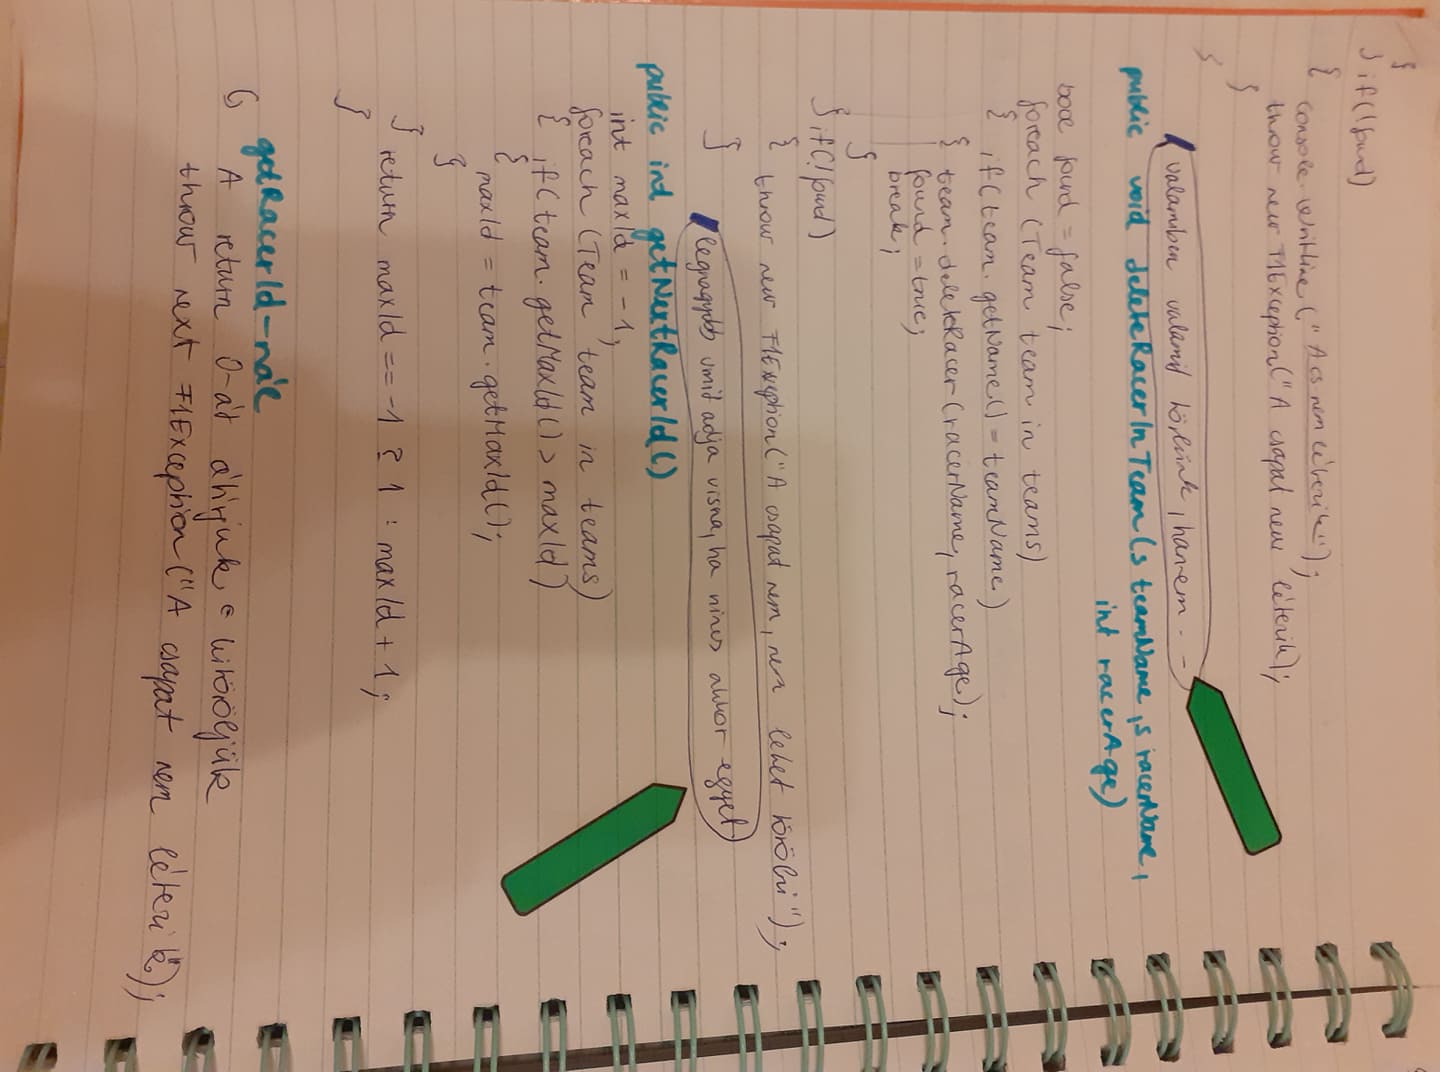 }
} if(!found)
{ console.writeline("A cs nem létezik");
throw new F1Exception("A csapat nem létezik);
}
}
valamiben valamit törlünk, ha nem - -
public void deleteRacerInTeam(s teamName, s racerName,
int racerAge)
bool found = false;
foreach (Team team in teams)
{ if(team.getName() = teamName)
{ team.deleteRacer(racerName, racerAge);
found = true;
break;
}
} if(!found)
{ throw new F1Exception("A csapat nem, nem lehet törölni");
}
legnagyobb vmit adja vissza, ha nincs akkor egyet
public int getNextRacerId()
int maxId = -1;
foreach (Team team in teams)
{ if(team.getMaxId() > maxId)
{
maxId = team.getMaxId();
}
} return maxId == -1 ? 1 : maxId + 1;
}
getRacerId-nál
↳ A return 0-át átírjuk, kitöröljük
throw next F1Exception("A csapat nem létezik");